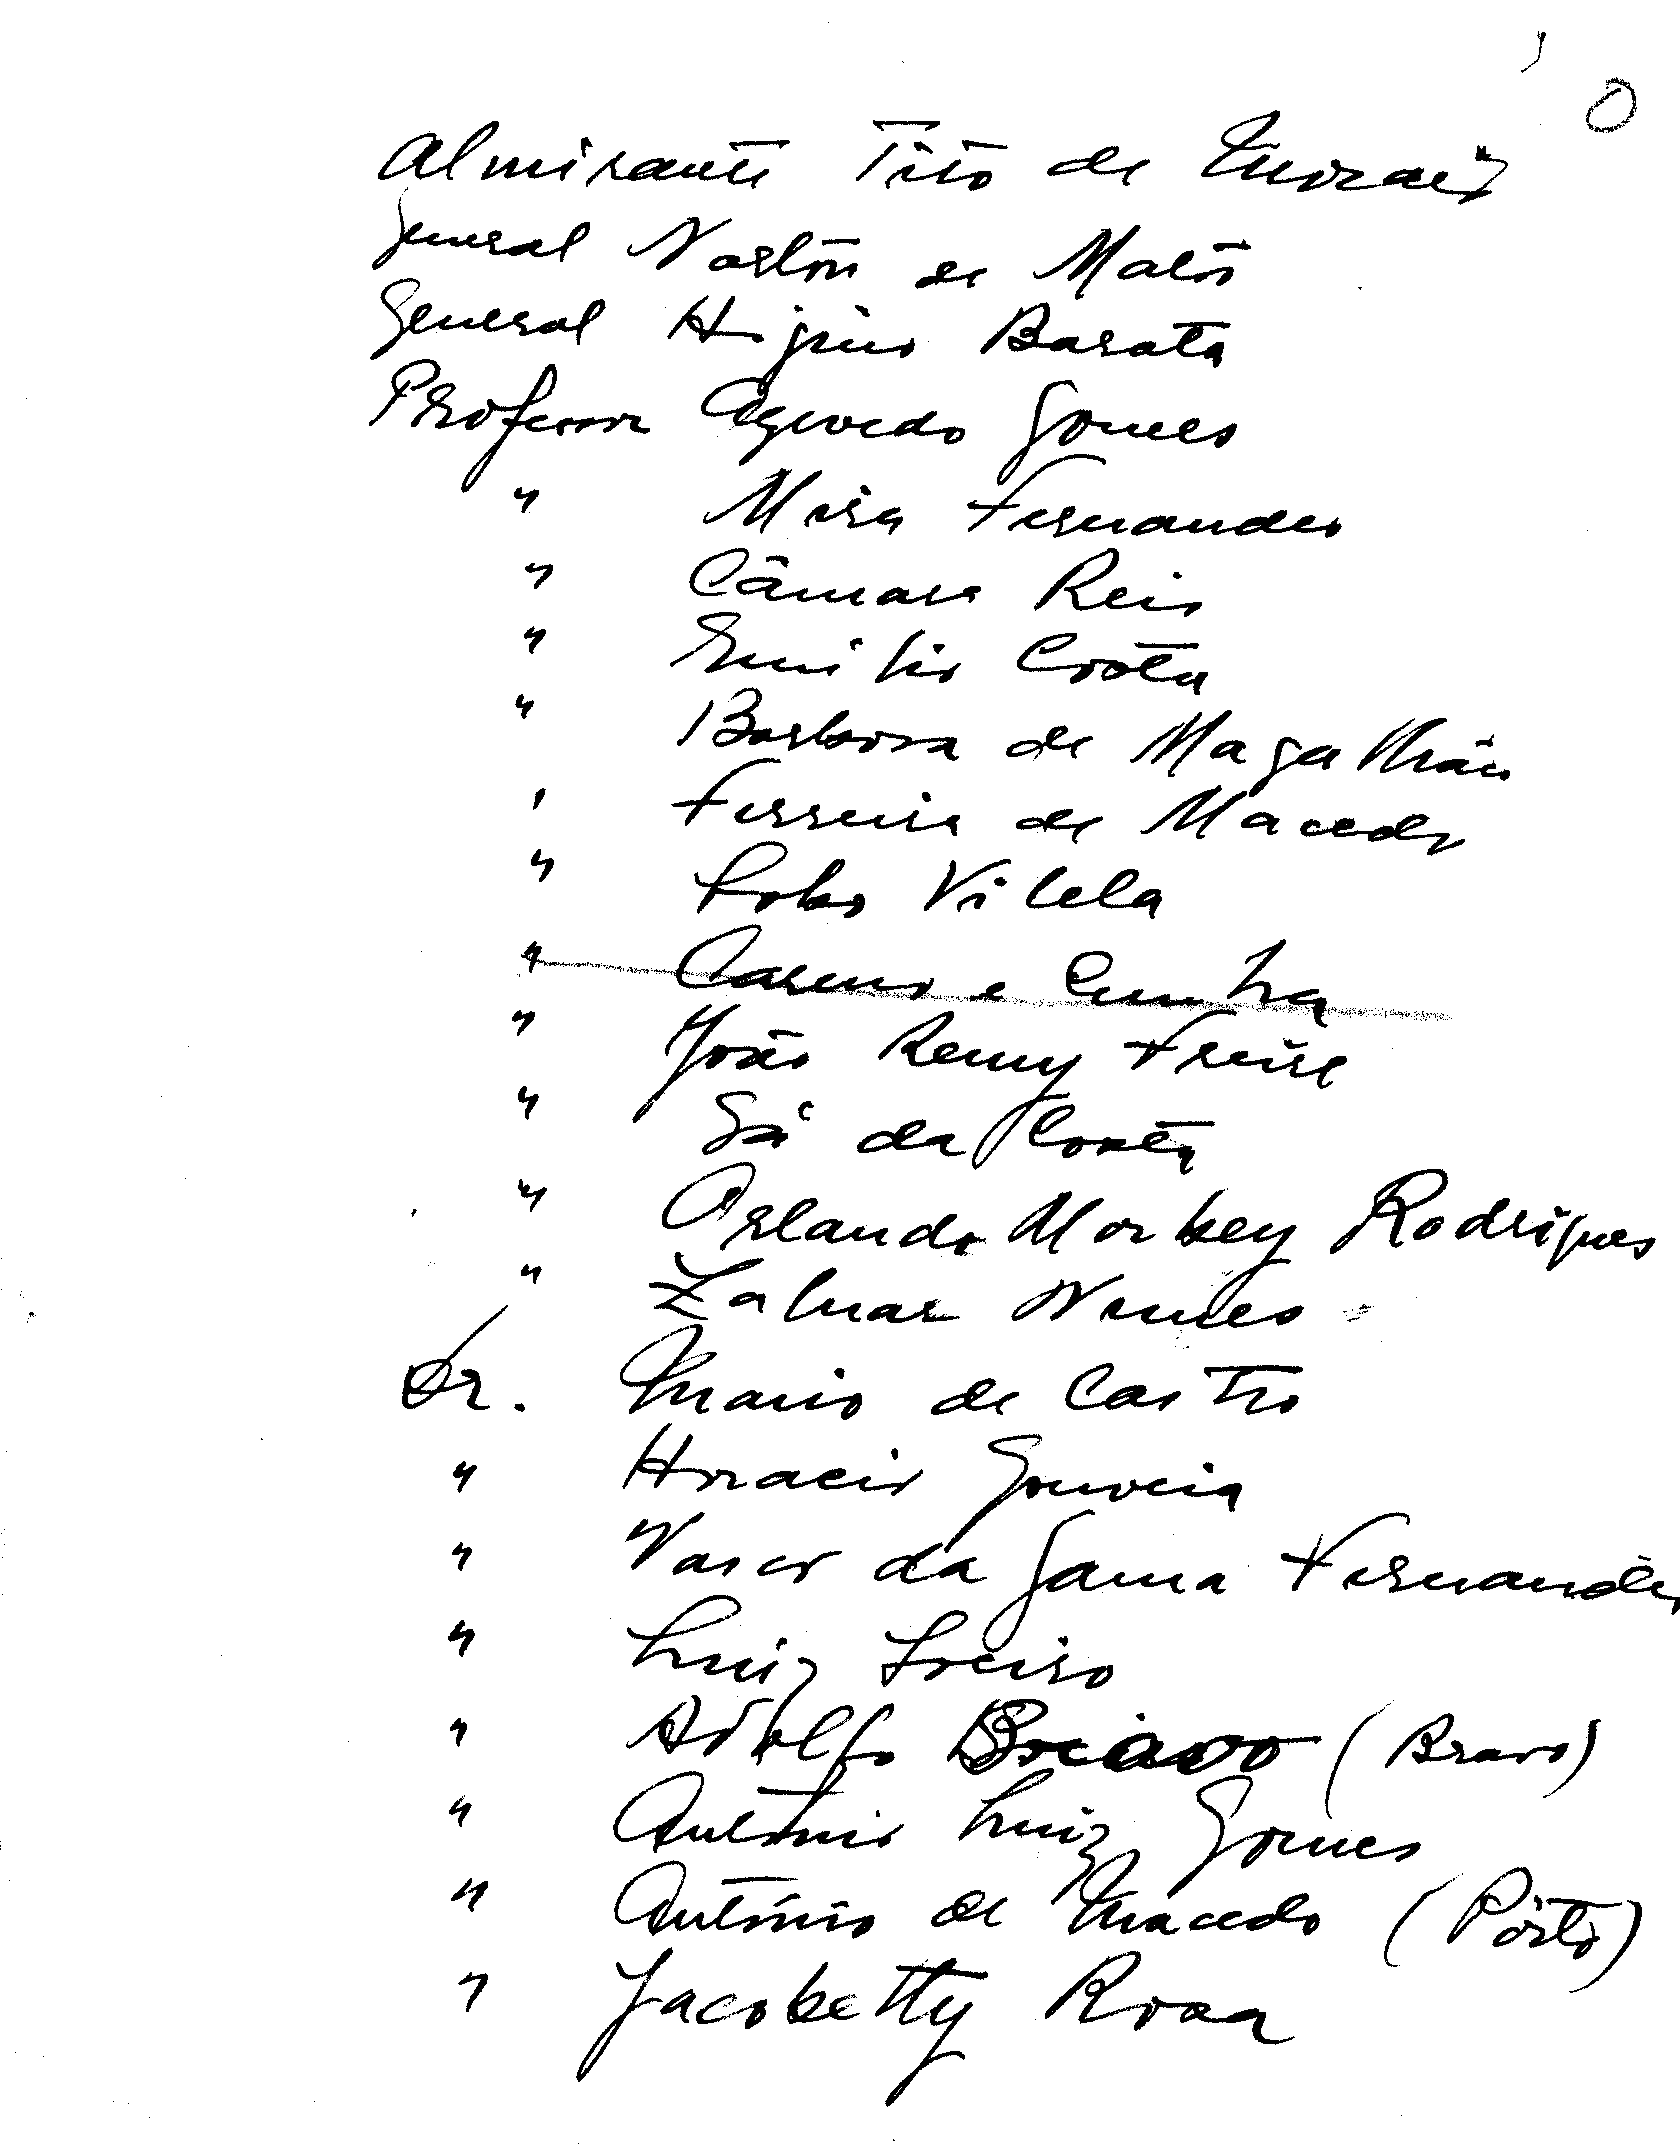 Almirante Tito de Moraes
General Norton de Matos
General Higino Barata
Professor Azevedo Gomes
" Mira Fernandes
" Câmara Reis
" Emilio Costa
" Barbosa de Magalhães
" Ferreira de Macedo
" Lobo Vilela
" Caseno e Cunha
" João Remy Freire
" Sá da Costa
" Orlando Morbey Rodrigues
" Zaluar Nunes
Dr. Mario de Castro
" Horacio Gouveia
" Vasco da Gama Fernandes
" Luiz Loeiro
" Adolfo (Bravo)
" António Luiz Gomes
" António de Macedo (Pôrto)
" Jacobetty Rosa